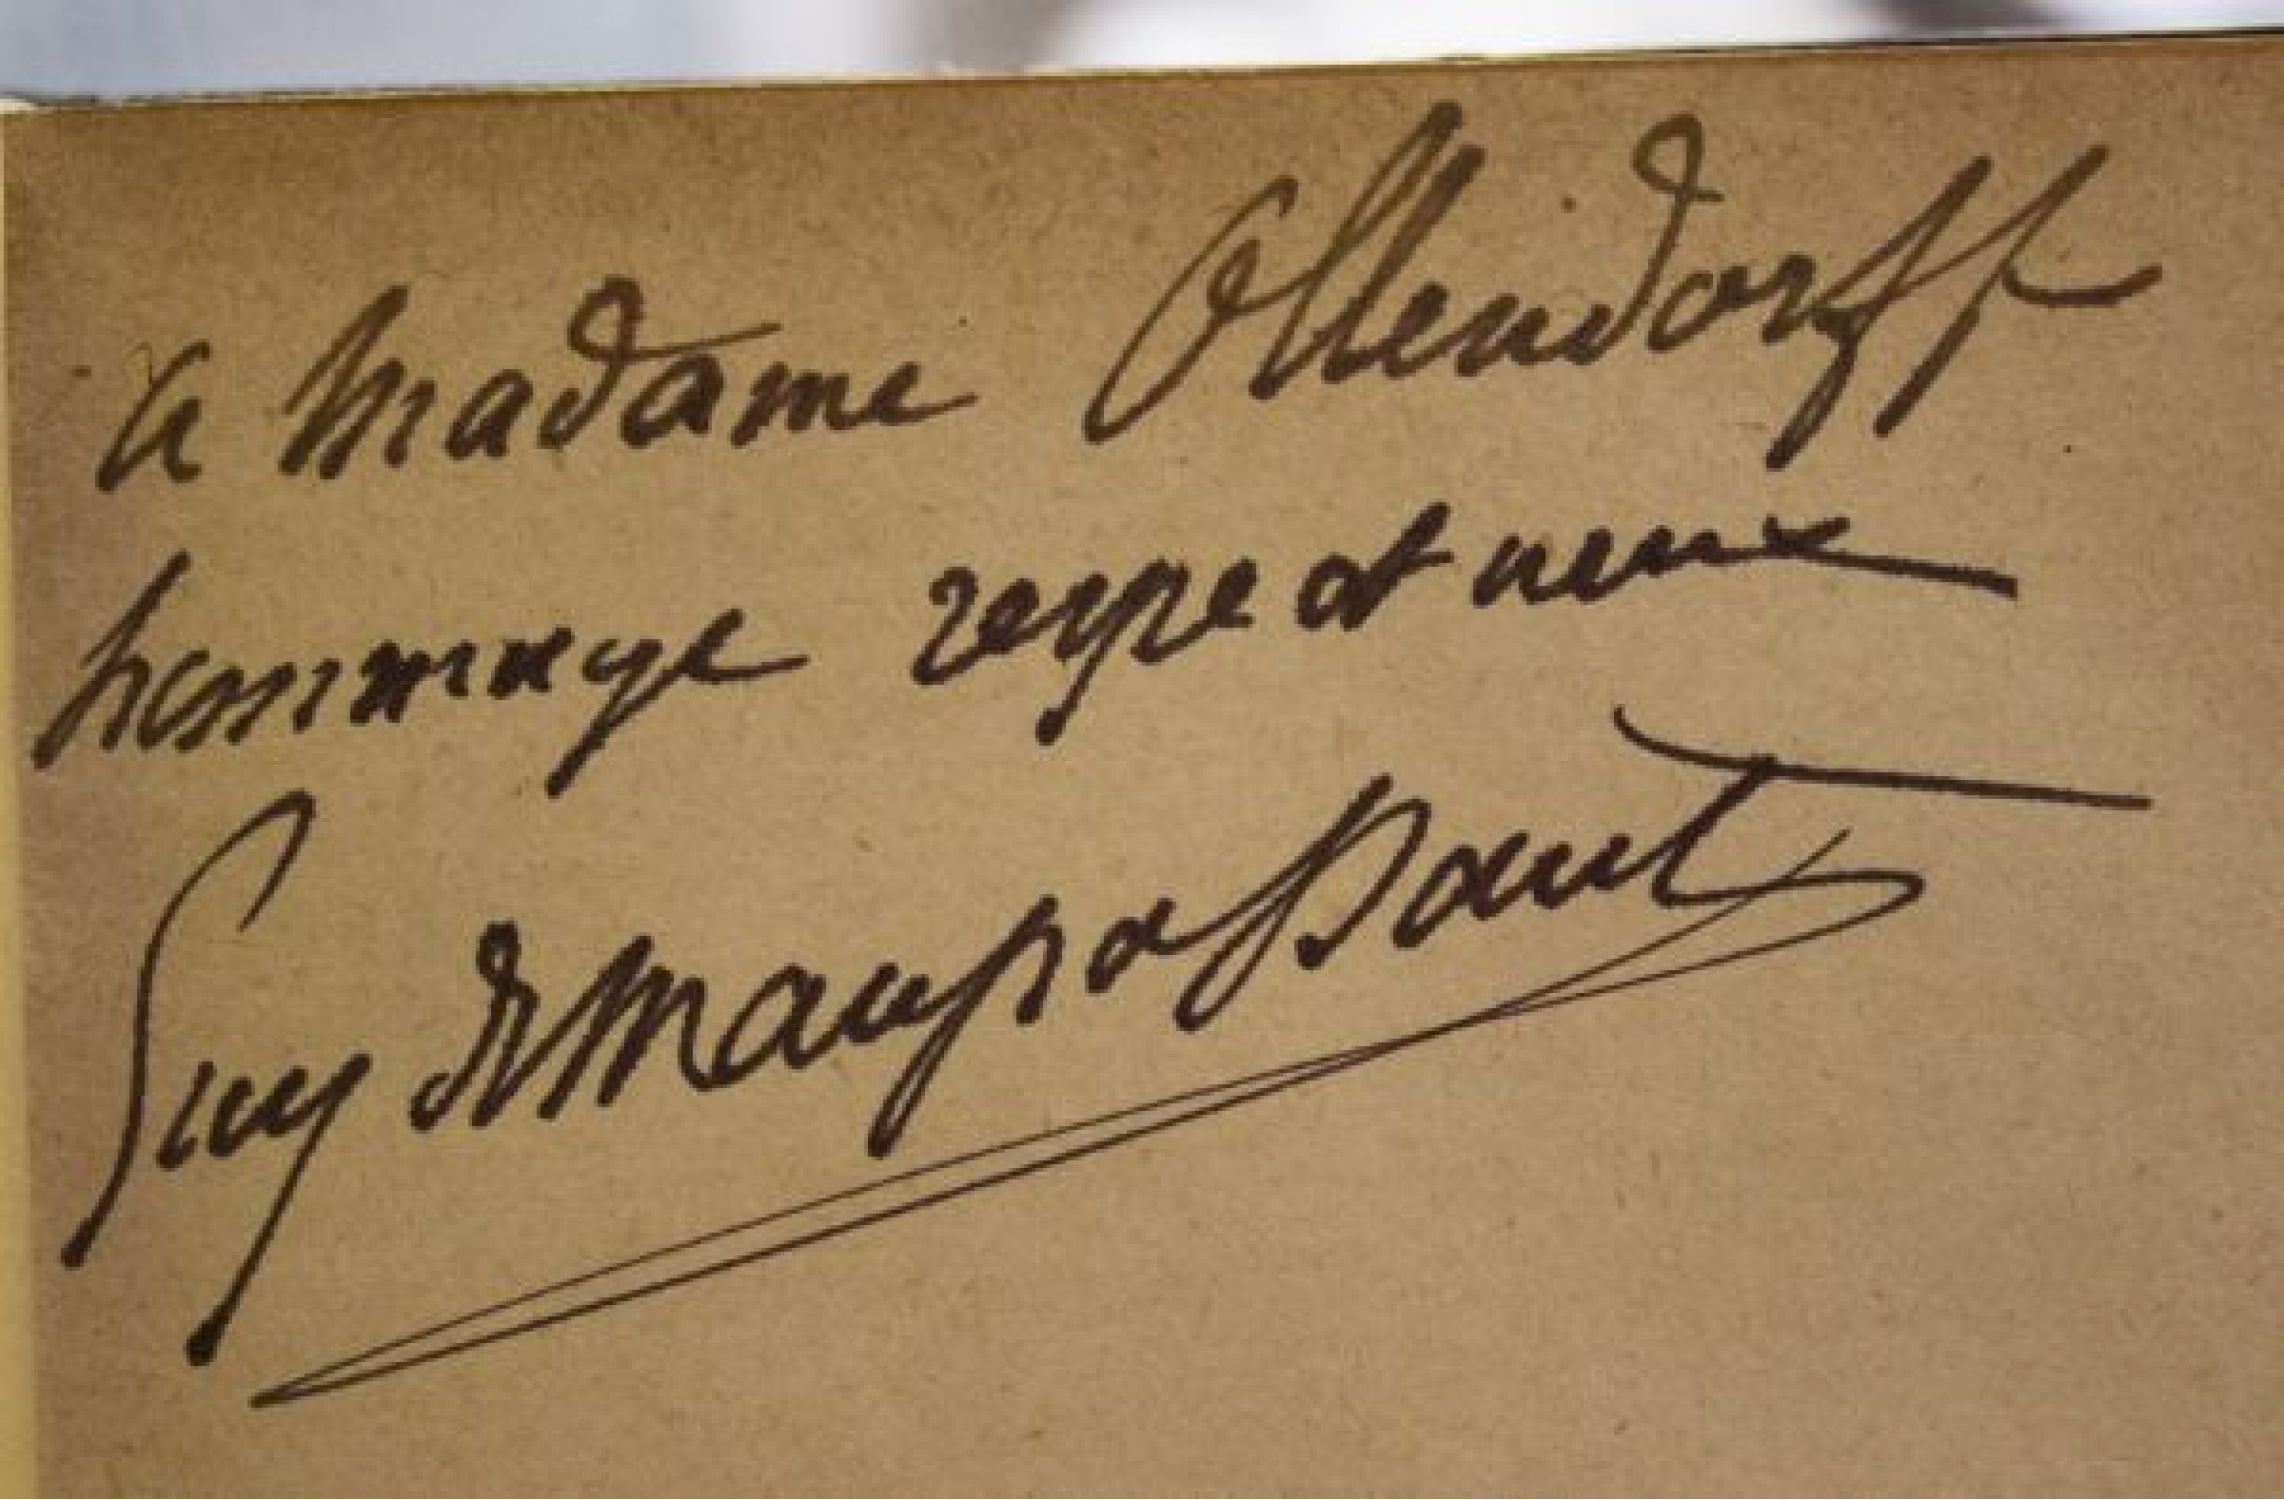 a Madame Ollendorff
hommage respectueux
Guy de Maupassant